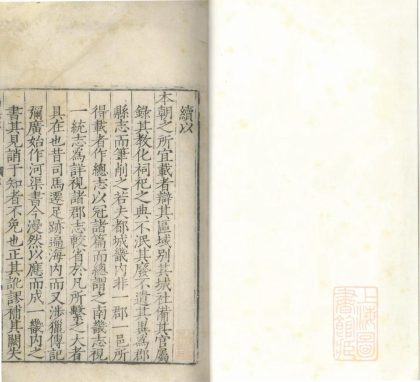 續以
本朝之所宜載者辯其區域別其城社備其官屬
錄其敎化祠祀之典不泯其廢不遺其異爲郡
縣志而筆削之若夫都城畿內非一郡一邑所
得載者作總志以冠諸篇而總謂之南畿志視
一統志爲詳視諸郡志較省於凡所繫之大者
具在也昔司馬遷足跡遍海內而又涉獵傳記
彌廣始作河渠書今漫然以應而成一畿內之
書其見誚于知者不免也正其訛謬補其闕失
上海圖
書館藏